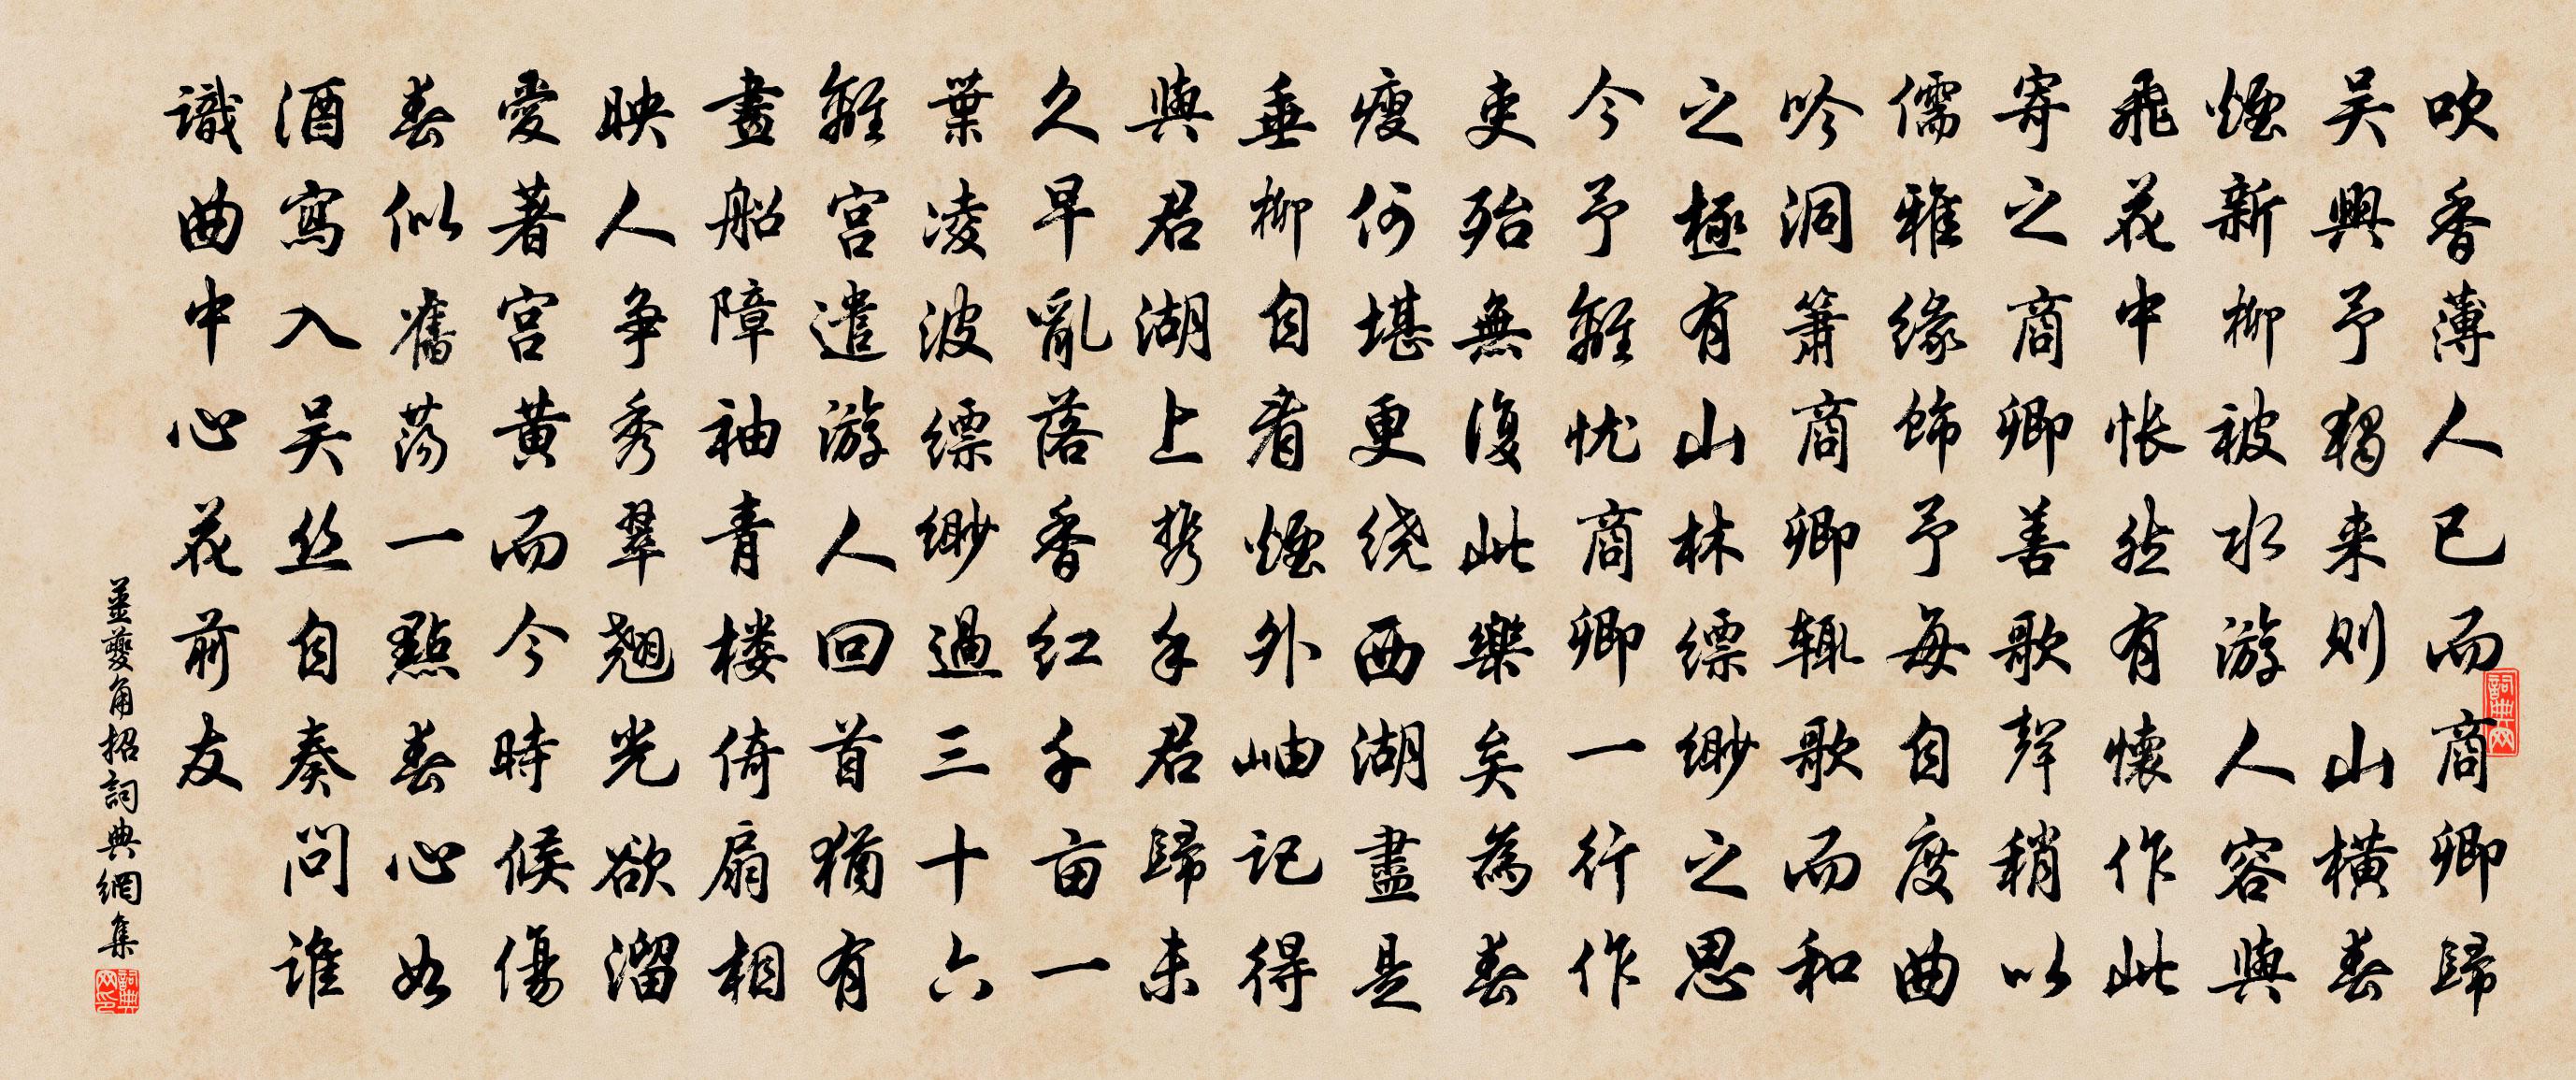 吹香薄人已而商卿歸
吴興予獨来則山橫春
煙新柳被水游人容與
飛花中悵然有懷作此
寄之商卿善歌聲稍以
儒雅緣飾予每自度曲
吟洞簫商卿輒歌而和
之極有山林縹緲之思
今予離忧商卿一行作
吏殆無復此樂矣為春
瘦何堪更绕西湖盡是
垂柳自看煙外岫記得
與君湖上携手君歸未
久早亂落香红千亩一
葉凌波縹緲過三十六
離宫遣游人回首猶有
畫船障袖青楼倚扇相
映人争秀翠翹光欲溜
愛著宫黄而今時候傷
春似舊荡一點春心如
酒寫入吴丝自奏問谁
識曲中心花前友
姜夔角招詞典網集
詞典网
詞典网印